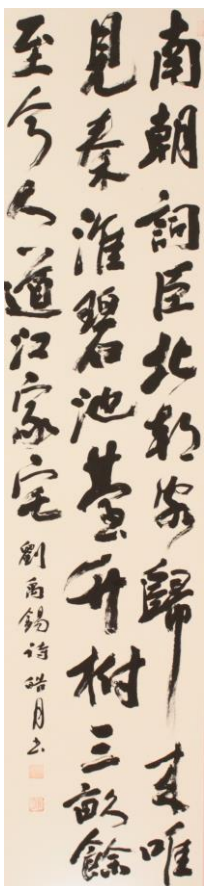 南朝詞臣北朝客歸来唯
見秦淮碧池臺竹樹三畝餘
至今人道江家宅
劉禹錫詩 皓月书